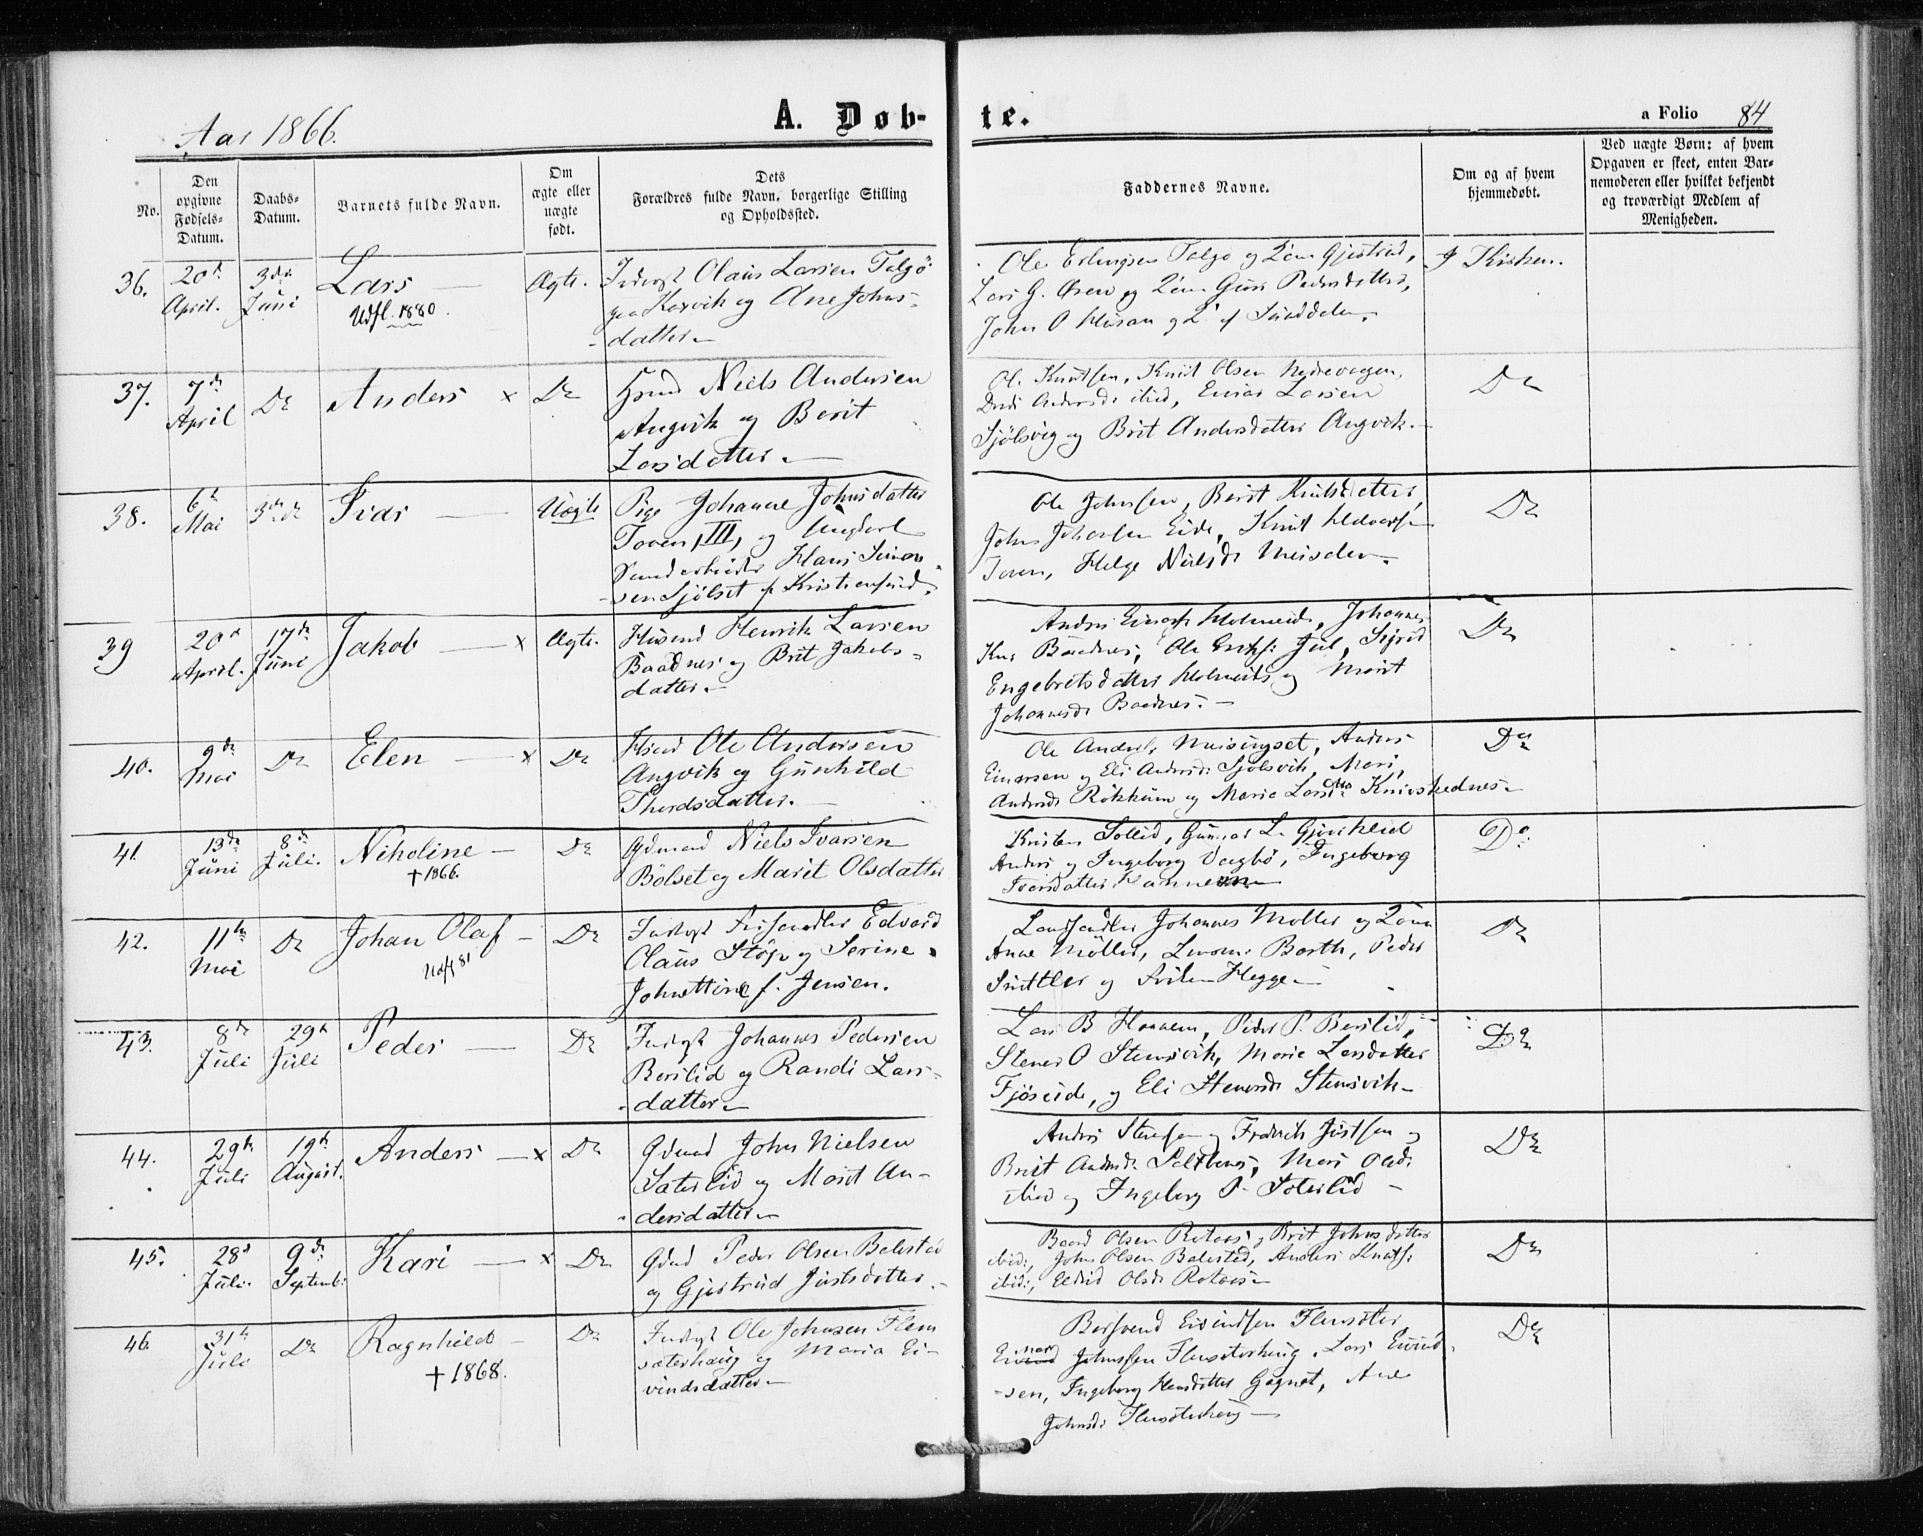 Aar 1866.
A. Døb-
te.
a Folio 84
No.
Den opgivne Fødsels-Datum.
Daabs-Datum.
Barnets fulde Navn.
Om ægte eller uægte født.
Dets Forældres fulde Navn, borgerlige Stilling og Opholdssted.
Faddernes Navne.
Om og af hvem hjemmedøbt.
Ved uægte Børn: af hvem Opgaven er skeet, enten Barnemoderen eller hvilket bekjendt og troværdigt Medlem af Menigheden.
36. 20de April. 3die Juni Lars Udfl. 1880. Ægte.
Inderst Olaus Larsen Talgø
paa Korvik og Ane Johns-
datter
Ole Erlingsen Talgø og Kone Gjertrud,
Lars G. Øren og Kone Guri Pedersdatter,
John O
I Kirken.
37. 7de April Do Anders x Do
Gbmd Niels Andersen
Angvik og Berit
Larsdatter.
Ol. Knutsen, Knut Olsen
Andersd. ibid, Einar Larsen
Sjölsvig og Brit Andersdatter Angvik.
Do
38. 6te Mai 3die do Ivar Uægte
Pige Johanne Johnsdatter
Toven, III, og Ungkarl
Hans Simon-
sen Sjölset af Kristiansund.
Ole Johnsen, Berit Knutsdatter,
John Johansen Eide, Knut
Toven, Helge Nielsd.
Do
39 20de April. 17de Juni Jakob x Ægte.
Husmd Henrik Larsen
Baadnes og Brit Jakobs-
datter.
Anders Einarsen Holmeide, Johannes
Baadnes, Ole Eriks. Jul, Sigrid
Engebretsdatter Holmeide og Marit
Johannesd. Baadnes.
Do
40. 9de Mai Do Elen x Do
Husmd Ole Andersen
Angvik og Gunhild
Thordsdatter.
Ole Anders. Meisingset, Anders
Einarsen og Eli Andersd. Sjölsvik, Mari
Andersd. Rökkum og Marie Larsdtr Knivskednes.
Do
41. 13de Juni 8de Juli. Nikoline † 1866. Do
Gdmand Niels Ivarsen
Bölset og Marit Olsdatter
Kristen Sollid, Gunnar L. Gjivikleid
Anders og Ingeborg Vaagbø, Ingeborg
Iversdatter
Do
42. 11te Mai Do Johan Olaf Udfl 81 Do
Inderst Edvard
Olaus Støp og Serine
Johnettine f. Jensen.
Landhandler Johannes Møller og Kone
Anne Møller, Barth, Peder
og Hegge
Do
43. 8de Juli 29de Juli Peder Do
Inderst Johannes Pedersen
Berslid og Randi Lars-
datter
Lars B Hannem, Peder P. Berslid,
Stener O Stensvik, Marie Larsdatter
Fjøseide, og Eli Stenersd. Stensvik
Do
44. 29de Juli 19de August. Anders x Do
Gdmand John Nielsen
Sæterlid og Marit An-
dersdatter
Anders Stenersen og Fredrik Justsen og
Brit Andersd. Saltbones, Mari Olsd.
ibid og Ingeborg P. Sæterlid
Do
45. 28de Juli. 9de Septemb. Kari x Do
Gdmd Peder Olsen Balestad
og Gjertrud Justsdatter.
Baard Olsen Rotaas, Brit Johnsdatter
ibid:, John Olsen Balestad, Anders Knuts.
ibid:, Eldrid Olsd. Rotaas
Do
46. 31te Juli Do Ragnhild † 1868. Do
Inderst Ole Johnsen Flem
sæterhaug og Maria Ei-
vindsdatter
Bersvend Eivindsen Flemsæter
Mari Johnssen Flemsæterhaug, Lars Eivind-
sen, Ingeborg Gagnat, Ane
Johnsd: Flemsæterhaug
Do